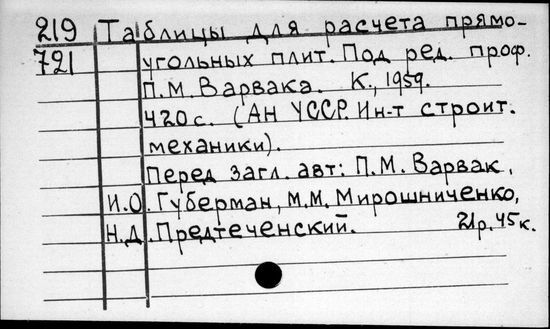 219 Таблицы для расчета прямо-
721 угольных плит. Под ред. проф.
П.М. Варвака. К., 1959.
420 с. (АН УССР. Ин-т строит.
механики).
Перед загл. авт: П.М. Варвак,
И.О. Губерман, М.М. Мирошниченко,
Н.Д. Предтеченский. 21р. 45к.